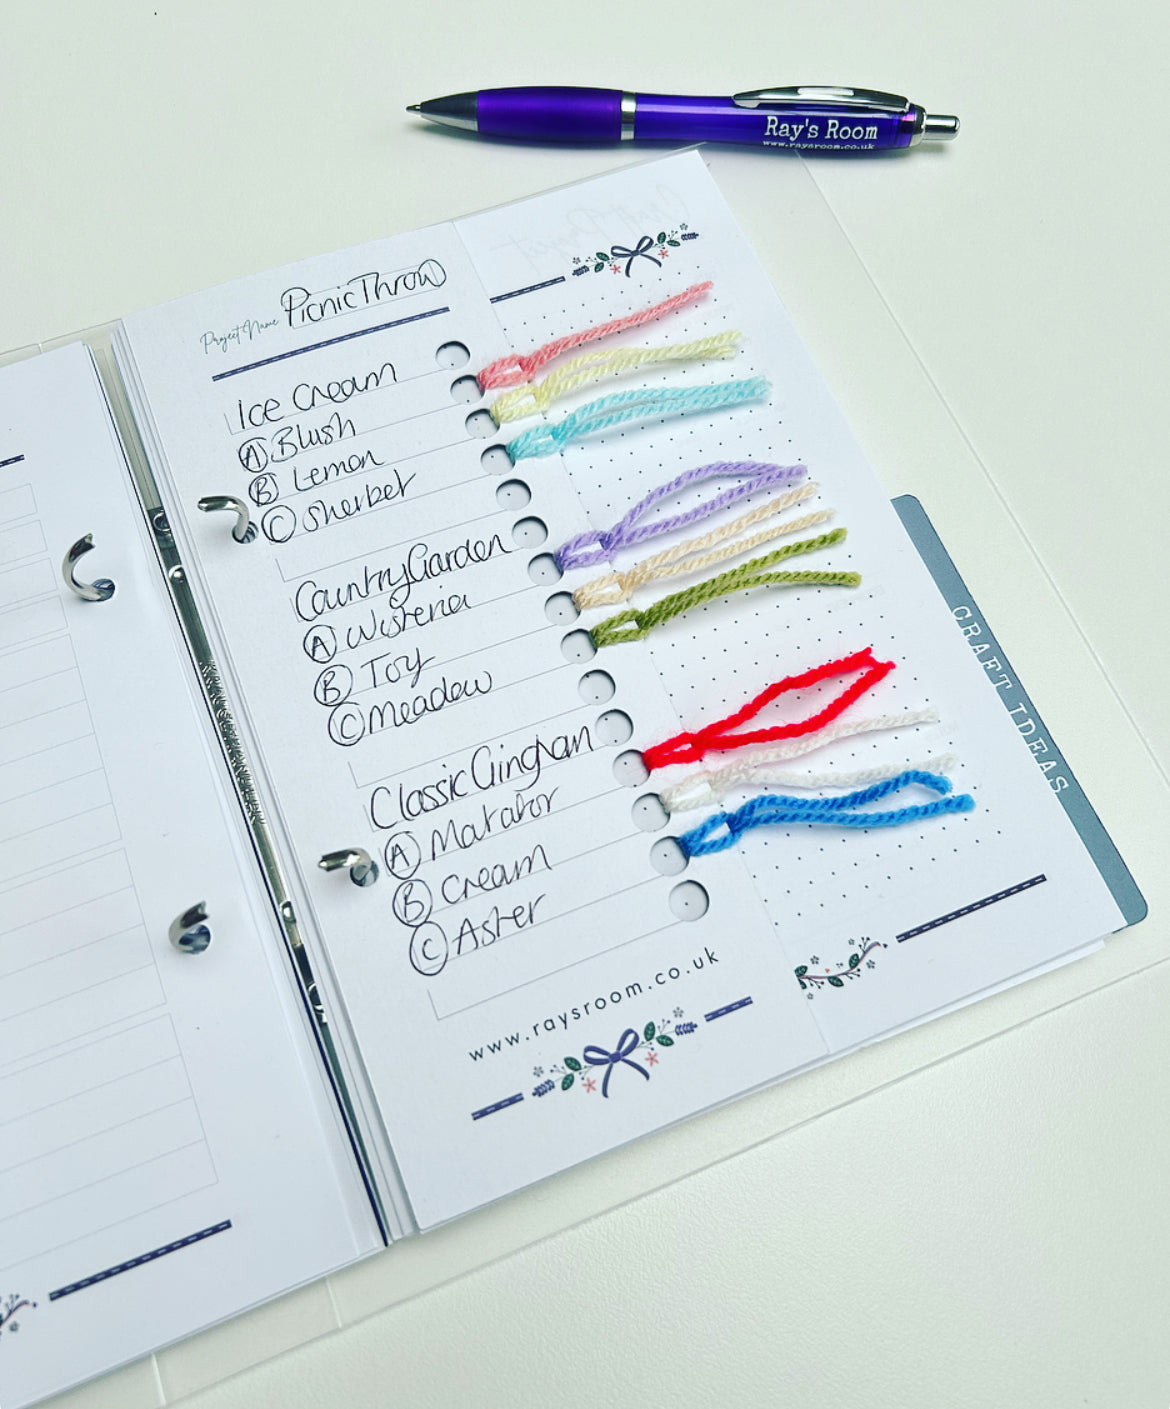 Ray's Room
www.raysroom.co.uk
Project Name PicnicThrow
Ice Cream
A Blush
B Lemon
C Sherbet
Country Garden
A Wisteria
B Toy
C Meadow
Classic Gingham
A Matador
B Cream
C Aster
www.raysroom.co.uk
CRAFT IDEAS